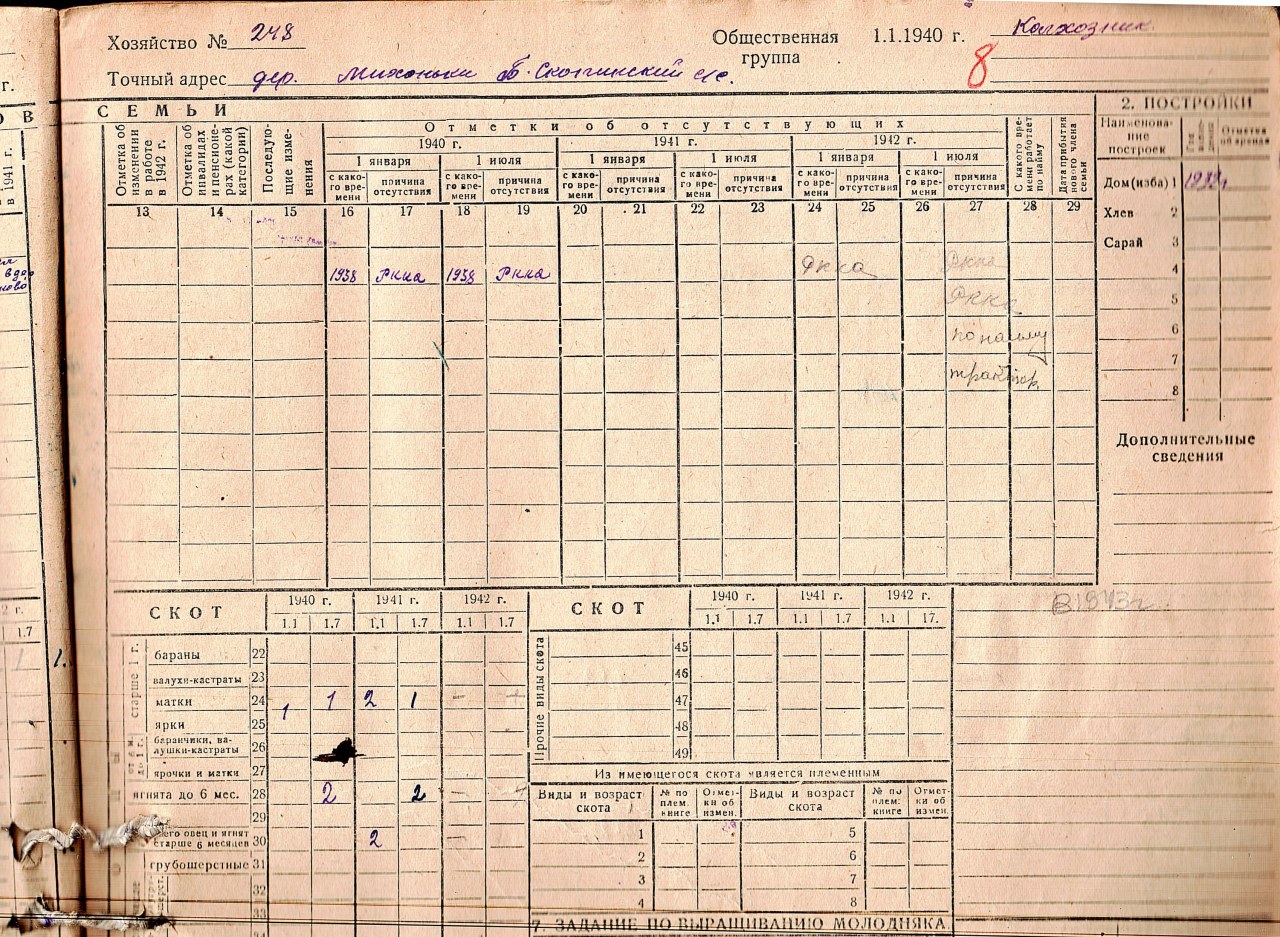 Хозяйство № 248
Общественная группа 1.1.1940 г. Колхозник
8
Точный адрес дер. Михоньки Б-Скопинский с/с.
г.
ОВ
1941 г.
в 1941 г.
СЕМЬИ
Отметка об изменении в работе в 1942 г.
Отметка об инвалидах и пенсионерах (какой категории)
Последующие изменения
Отметки об отсутствующих
1940 г. 1941 г. 1942 г.
1 января 1 июля 1 января 1 июля 1 января 1 июля
с какого времени причина отсутствия с какого времени причина отсутствия с какого времени причина отсутствия с какого времени причина отсутствия с какого времени причина отсутствия с какого времени причина отсутствия
С какого времени работает по найму
Дата прибытия нового члена семьи
13 14 15 16 17 18 19 20 21 22 23 24 25 26 27 28 29
1938 Ркка 1938 Ркка Ркка Ркка
Ркка
по найму
трактор
2. ПОСТРОЙКИ
Наименование построек
Отметка об аренде
Дом(изба) 1
Хлев 2
Сарай 3
4
5
6
7
8
Дополнительные сведения
В 1943 г.
2 г.
1.7
1.
СКОТ 1940 г. 1941 г. 1942 г.
1.1 1.7 1.1 1.7 1.1 1.7
старше 1 г.
бараны 22
валухи-кастраты 23
матки 24 1 1 2 1 – +
ярки 25
до 1 г.
баранчики, валушки-кастраты 26
ярочки и матки 27
ягнята до 6 мес. 28 2 2 –
29
его овец и ягнят старше 6 месяцев 30 2
грубошерстные 31
32
33
СКОТ 1940 г. 1941 г. 1942 г.
1.1 1.7 1.1 1.7 1.1 17.
Прочие виды скота
45
46
47
48
49
Из имеющегося скота является племенным
Виды и возраст скота № по плем. книге Отметки об измен. Виды и возраст скота № по плем. книге Отметки об измен.
1 5
2 6
3 7
4 8
7. ЗАДАНИЕ ПО ВЫРАЩИВАНИЮ МОЛОДНЯКА.